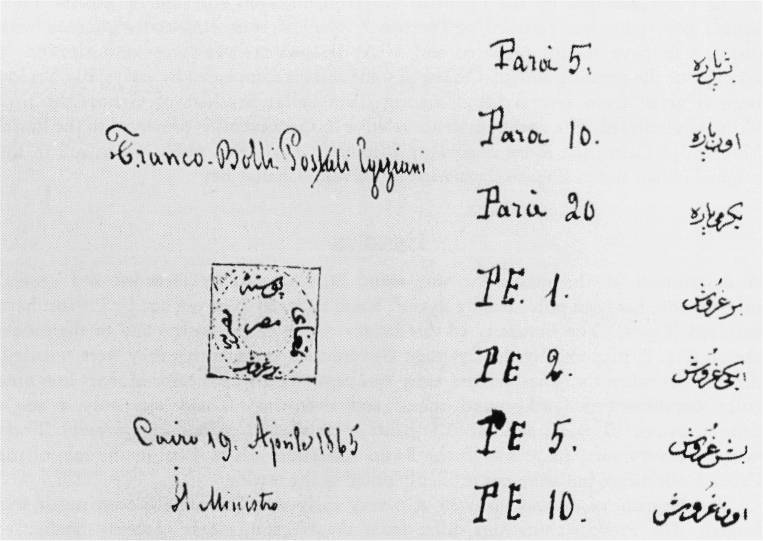 Franco-Bolli Postali Egiziani
Cairo 19. Aprile 1865
Il Ministro
Parà 5. بش پاره
Para 10. اون پاره
Parà 20 يكرمى پاره
PE. 1. بر غروش
PE 2. ايكى غروش
PE 5 بش غروش
PE 10. اون غروش
مصر